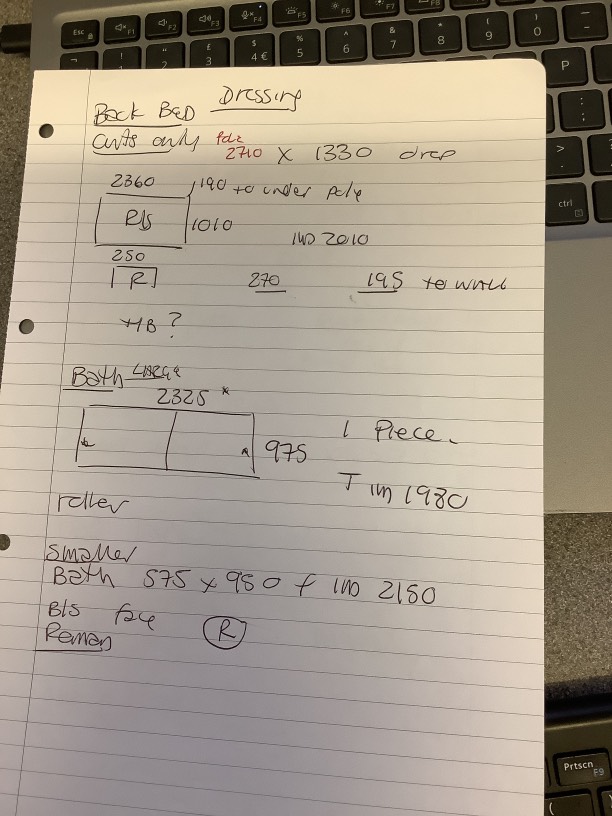 Back Bed Dressing
Curts only pole
2710 x 1330 drop
2360 190 to under pole
R/s 1010
IWD 2010
250
R 270 195 to wall
HB ?
Bath Large
2325 *
1 Piece.
975
T IWD 1980
roller
Smaller
Bath 575 x 980 f IWD 2150
B/s face
Roman R
Esc F1 F2 F3 F4 F5 F6 F7 F8
£ $ % ^ & * ( )
2 3 4 € 5 6 7 8 9 0
P
ctrl
Prtscn
F9